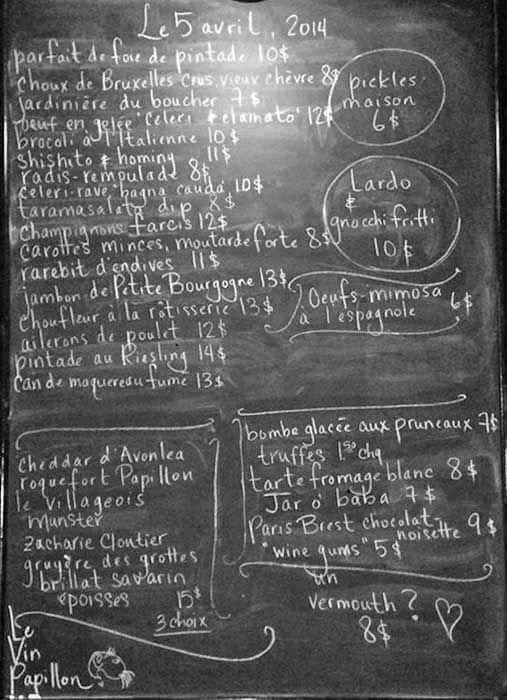 Le 5 avril, 2014
parfait de foie de pintade 10$
choux de Bruxelles crus, vieux chèvre 8$
jardinière du boucher 7$
boeuf en gelée "Celeri & clamato" 12$
brocoli à l'Italienne 10$
shishito & hominy 11$
radis-remoulade 8$
celeri-rave, bagna cauda, 10$
taramasalata dip 8$
champignons farcis 12$
carottes minces, moutarde forte 8$
rarebit d'endives 11$
jambon de Petite Bourgogne 13$
choufleur à la rôtisserie 13$
ailerons de poulet 12$
pintade au Riesling 14$
can de maquereau fumé 13$
pickles
maison
6$
Lardo
&
gnocchi fritti
10$
Oeufs-mimosa
à l'espagnole 6$
cheddar d'Avonlea
roquefort Papillon
le villageois
munster
zacharie Cloutier
gruyère des grottes
brillat savarin
époisses 15$
3 choix
bombe glacée aux pruneaux 7$
truffes 1.50 chq
tarte fromage blanc 8$
Jar o' baba 7$
Paris Brest chocolat-
noisette 9$
"wine gums" 5$
un
vermouth?
8$
Le
Vin
Papillon